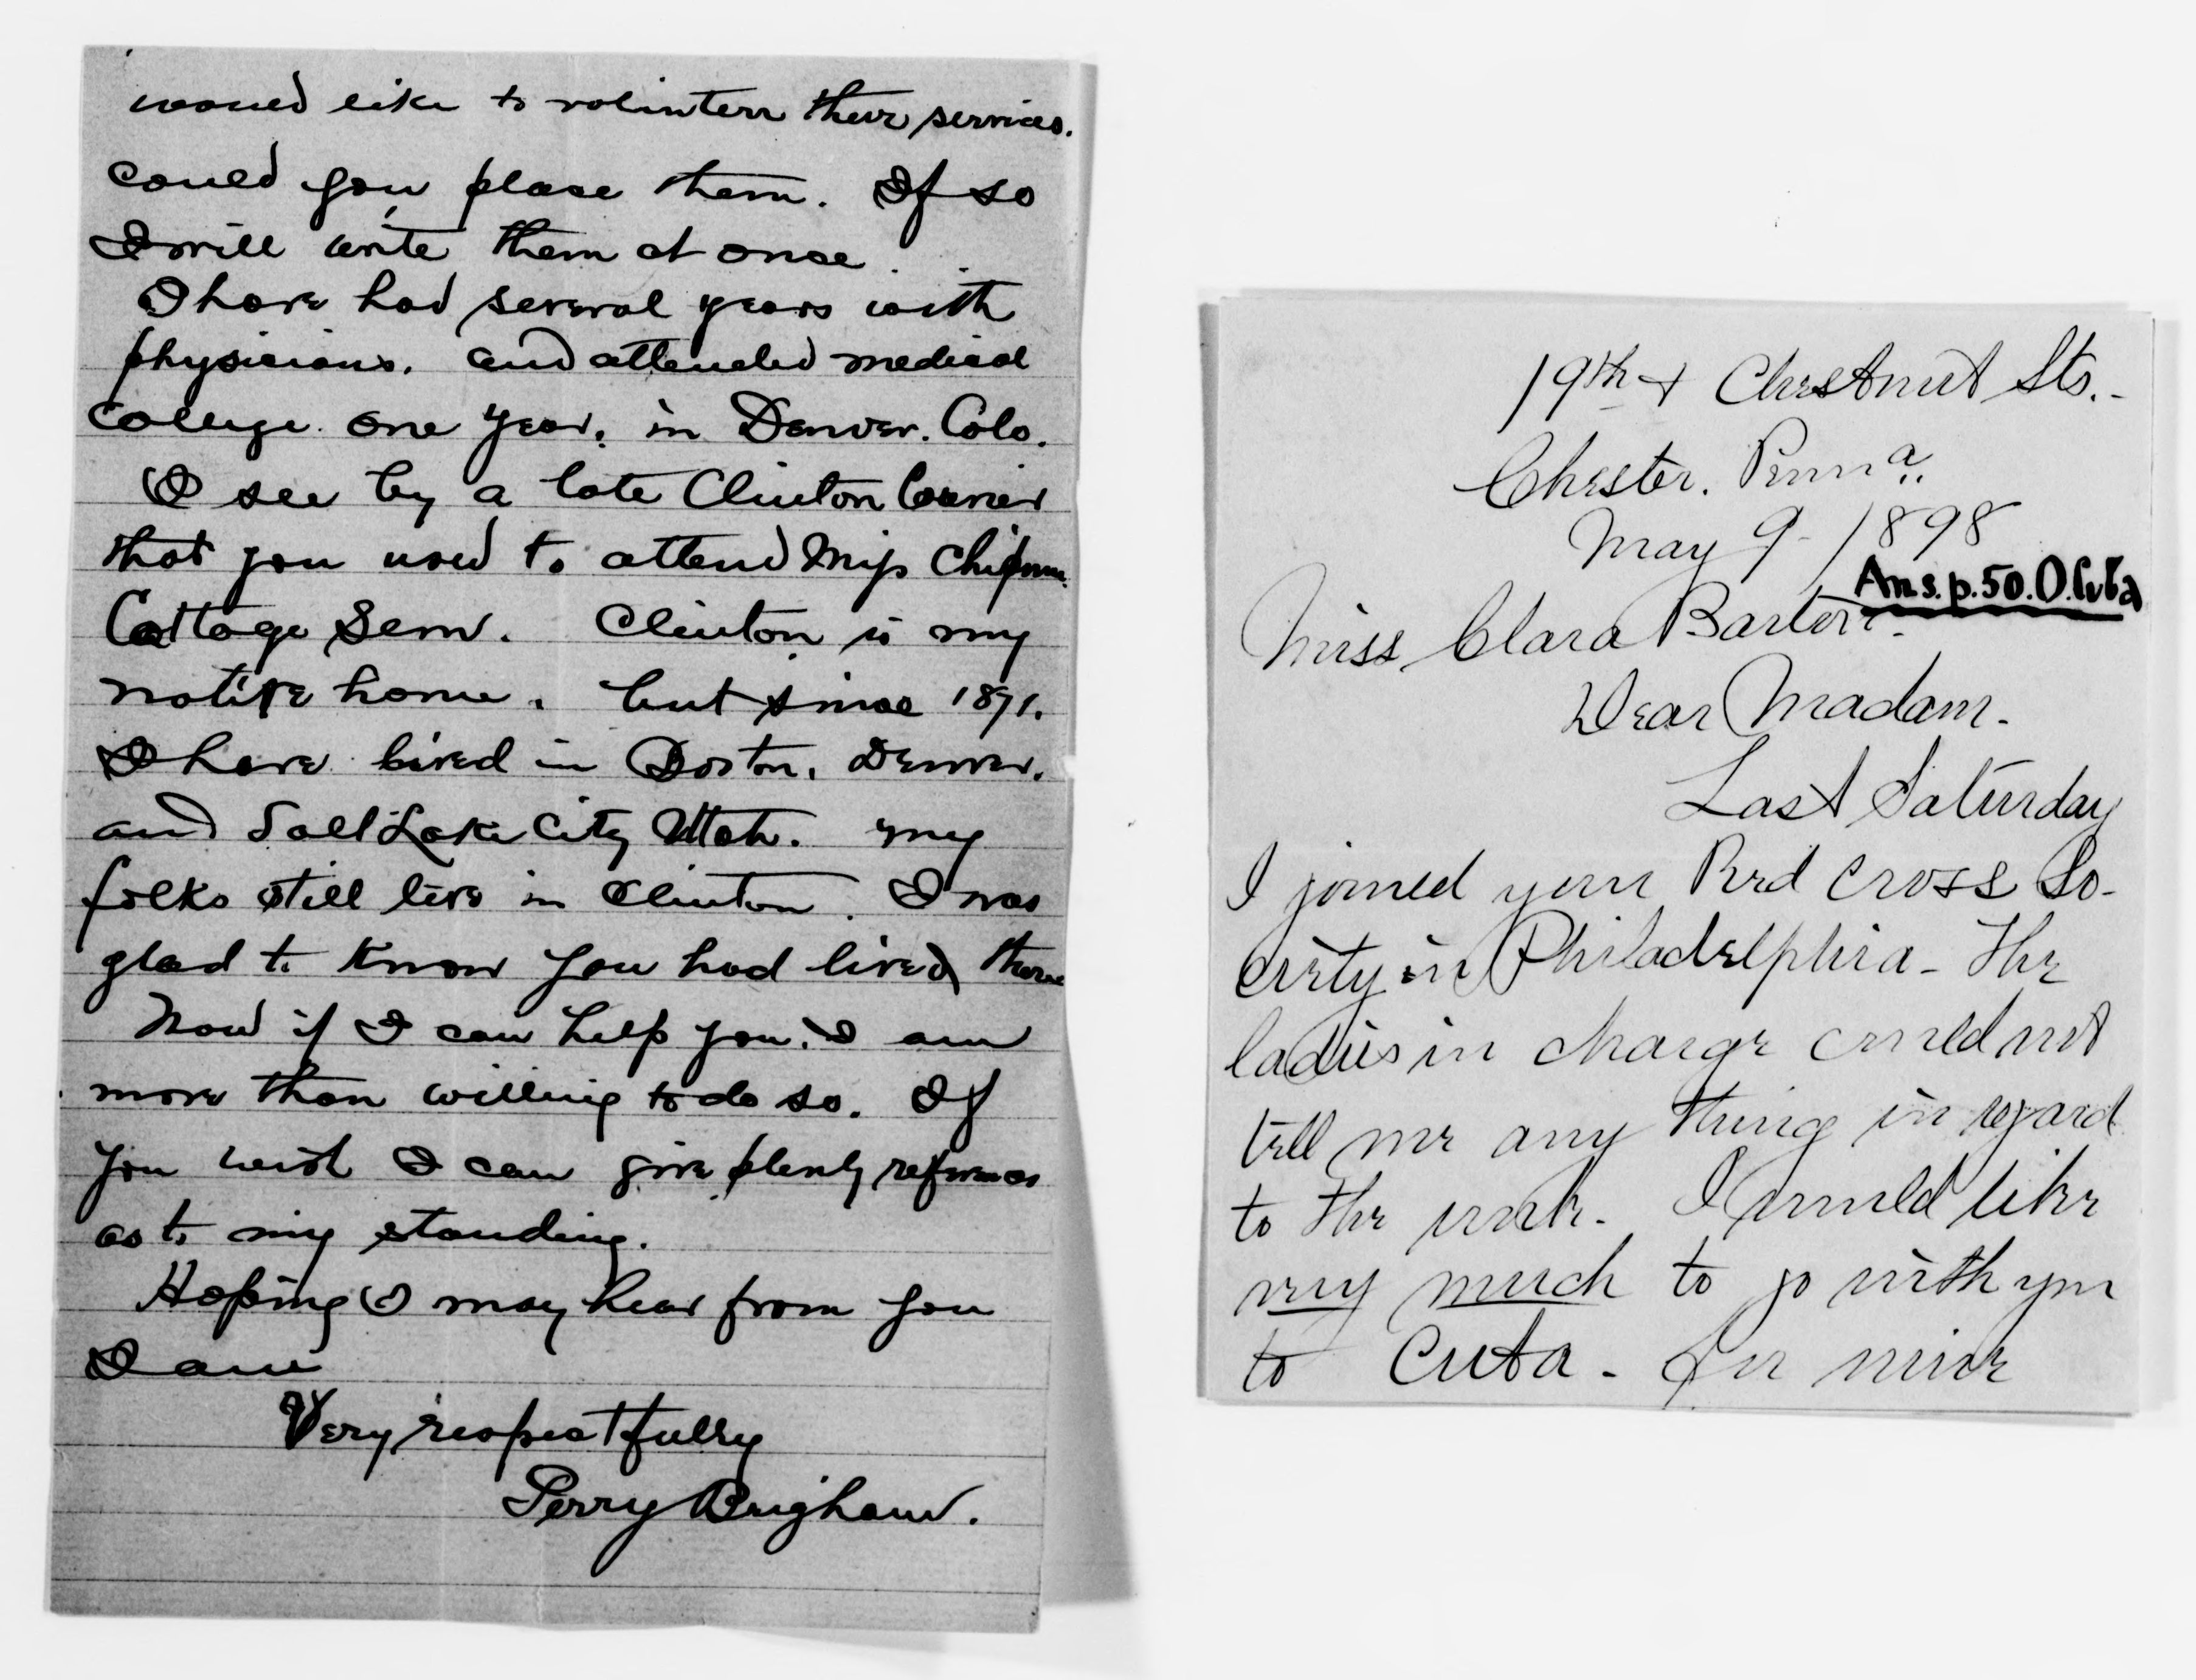 would like to volinteer their services.
could you place them. If so
I will write them at once.
I have had several years with
physicians. and attended medical
college one year, in Denver. Colo.
I see by a late Clinton Courier
that you used to attend Miss Chipman
Cottage Sem. Clinton is my
native home. but since 1891.
I have lived in Boston, Denver.
and Salt Lake City Utah. my
folks still live in Clinton. I was
glad to know you had lived there
Now if I can help you. I am
more than willing to do so. If
you wish I can give plenty references
as to my standing.
Hoping I may hear from you
I am
Very respectfully
Perry Brigham.
19th + Chestnut Sts.-
Chester. Penna.
May 9- 1898
Ans. p. 50. O. Cuba
Miss Clara Barton-
Dear Madam-
Last Saturday
I joined your Red Cross So-
ciety in Philadelphia- The
ladies in charge could not
tell me any thing in regard
to the work- I would like
very much to go with you
to Cuba- For nine